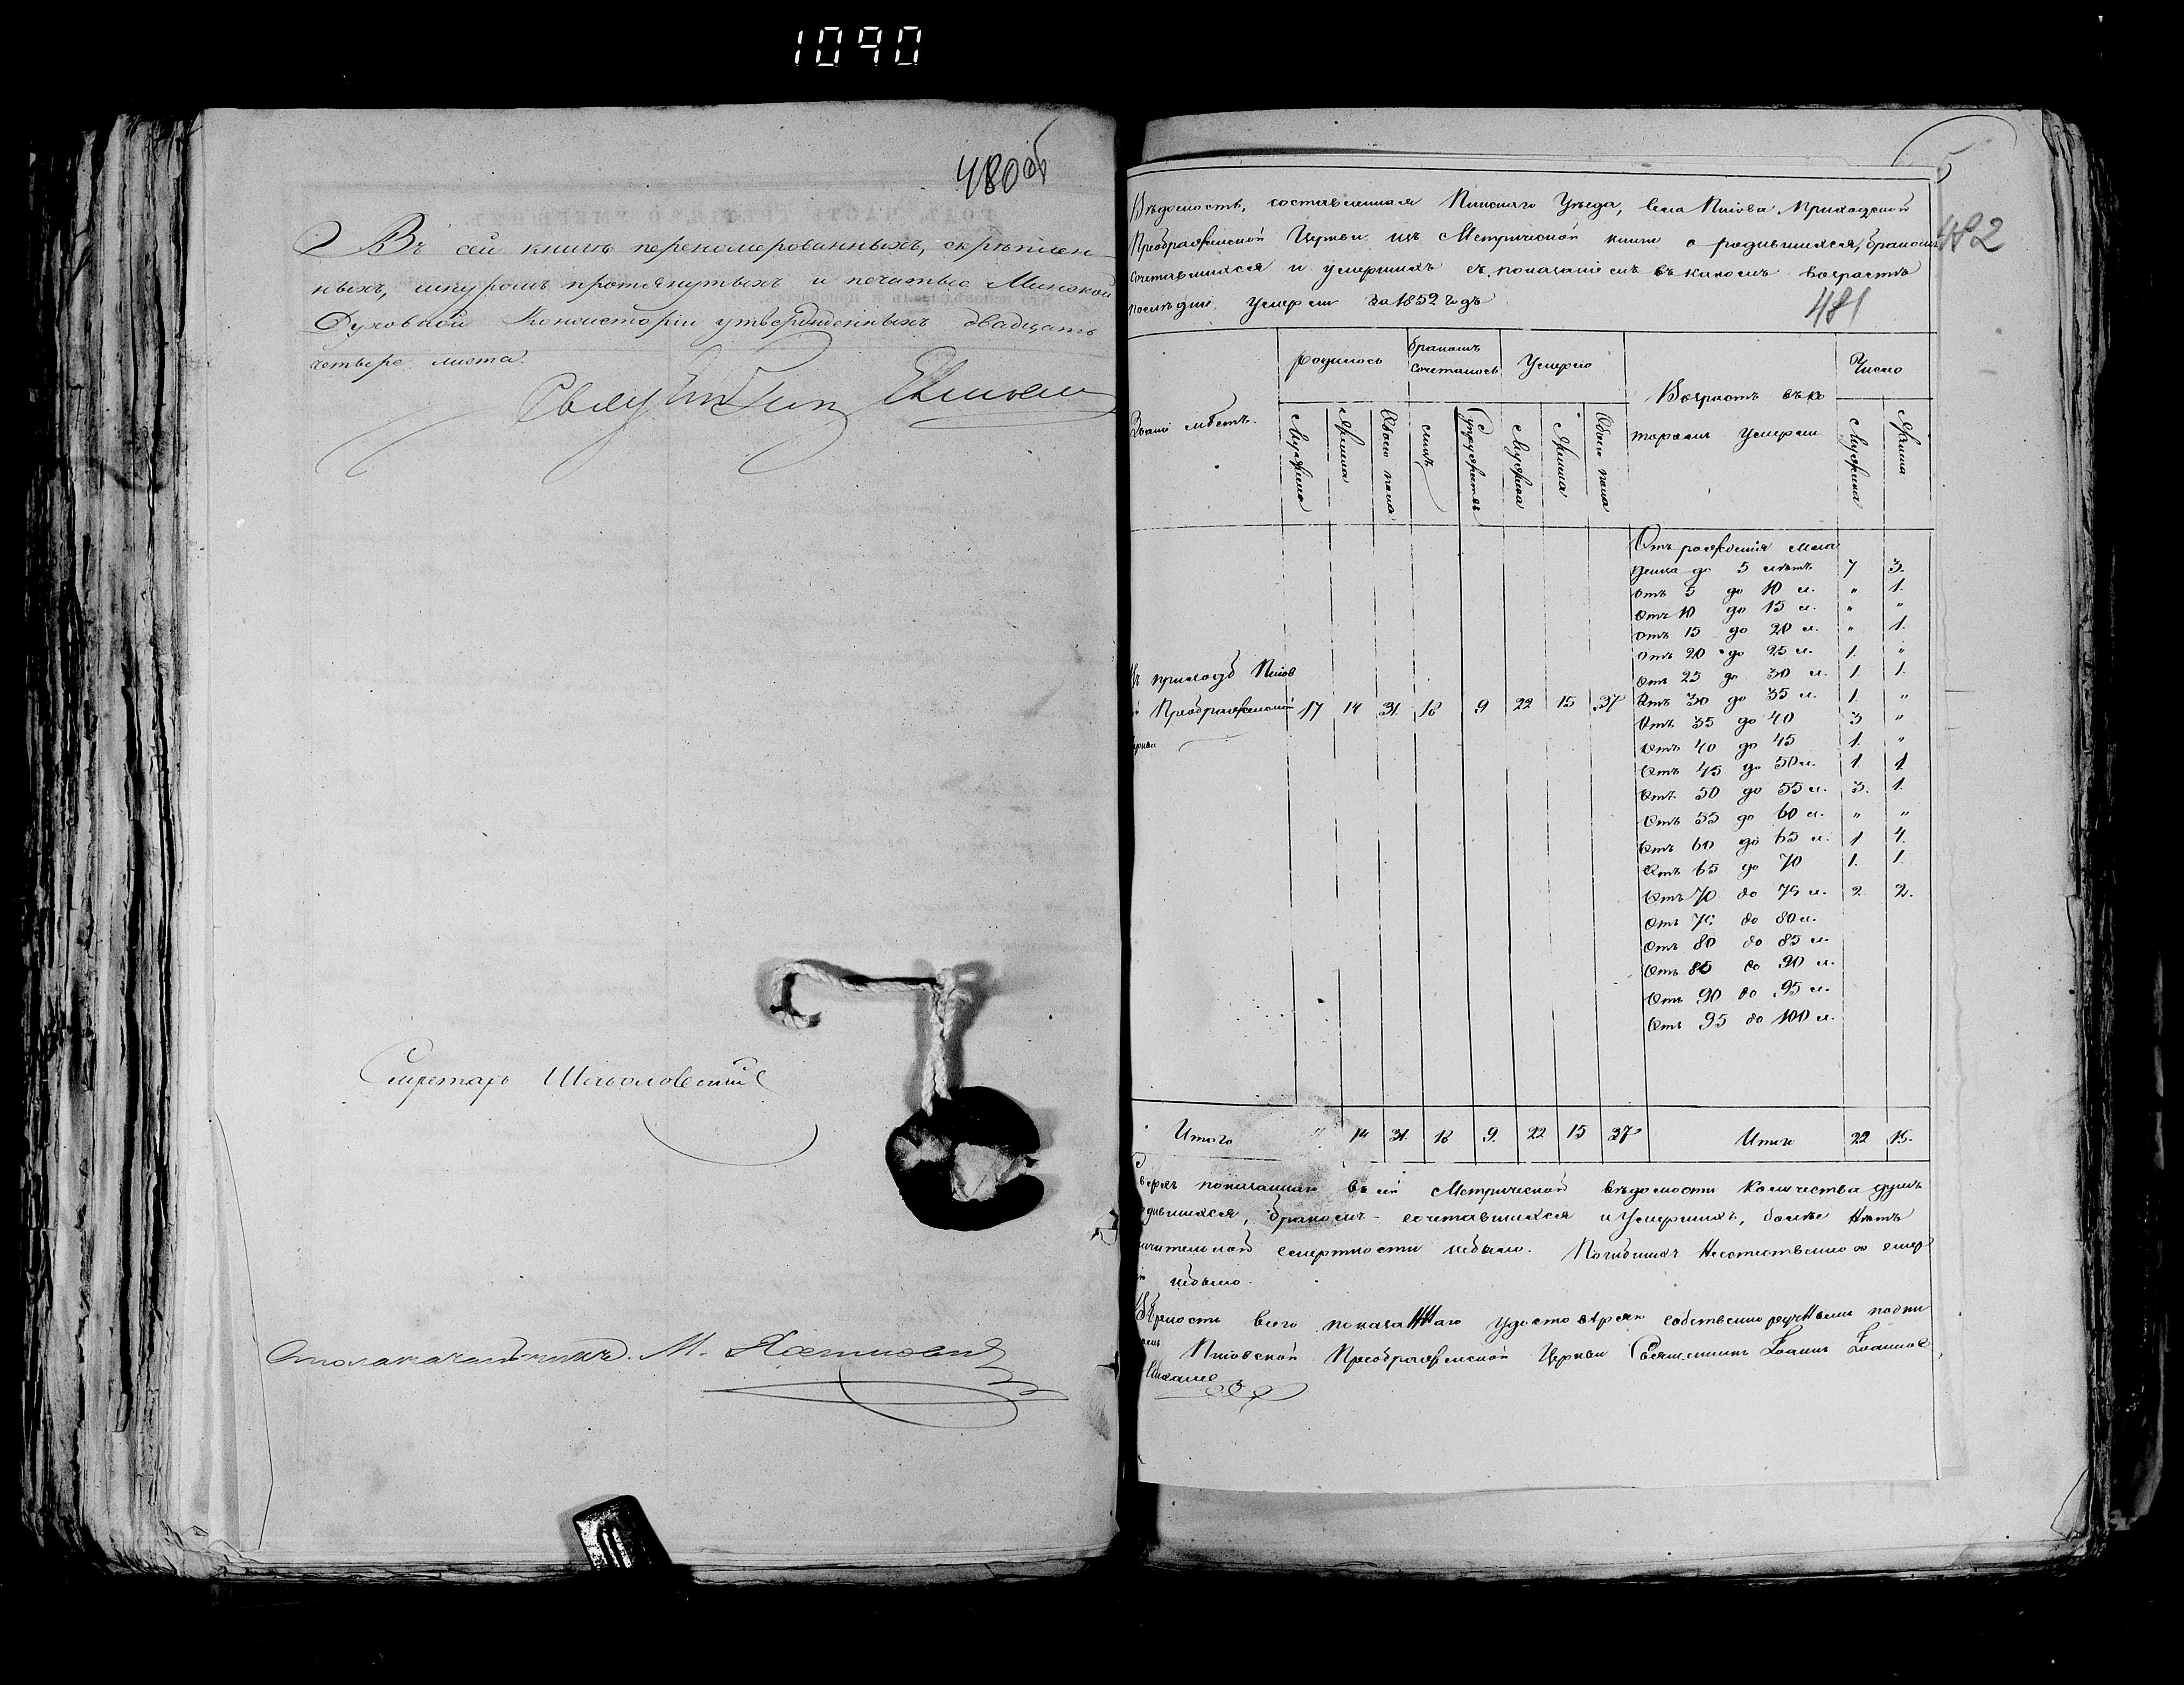 1090
480об
Въ сей книгѣ перекомерованныхъ, скрѣплен
ныхъ, шнуромъ протянутыхъ и печатью Минской
Духовной Консисторіи утвержденныхъ двадцать
четыре листа.
Секретарь
Столоначальникъ М.
Вѣдомость, составленная Пинскаго Уѣзда, села Приходской
Преображенской Церкви изъ Метрической книги о родившихся, бракомъ
сочетавшихся и умершихъ съ показаніемъ въ какомъ возрастѣ
послѣдніе умерли за 1852 годъ
482
481
Званіе мѣстъ. родилось бракомъ сочеталось Умерло Возрастъ въ ко Число
тораго умерли
Мужеска Женска Обоего пола лицъ Супружествъ Мужеска Женска Обоего пола Мужеска Женска
Отъ рожденія мла
денца до 5 лѣтъ 7 3.
Отъ 5 до 10 л. " 1.
Отъ 10 до 15 л. " "
Отъ 15 до 20 л. " 1.
Отъ 20 до 25 л. 1. "
Отъ 25 до 30 л. 1. 1.
Отъ 30 до 35 л. 1. "
Отъ 35 до 40 3 "
Отъ 40 до 45 1. "
Отъ 45 до 50 л. 1. 1.
Отъ 50 до 55 л. 3. 1.
Отъ 55 до 60 л. " "
Отъ 60 до 65 л. 1 4.
Отъ 65 до 70 1. 1.
Отъ 70 до 75 л. 2. 2.
Отъ 75 до 80 л.
Отъ 80 до 85 л.
Отъ 85 до 90 л.
Отъ 90 до 95 л.
Отъ 95 до 100 л.
приходѣ
Преображенской 17 14 31. 18 9 22 15 37
Итого 14 31. 18 9. 22 15 37 Итого 22 15.
показаннаго въ сей Метрической вѣдомости количества душъ
бракомъ-сочетавшихся и Умершихъ, болѣе Нѣтъ
смертности небыло. Погибшихъ Неестественною смер
небыло.
Вѣрность всего показаННаго удостовѣряю собственноручНымъ подпи
Преображенской Церкви Священникъ Іоаннъ Іоанновъ